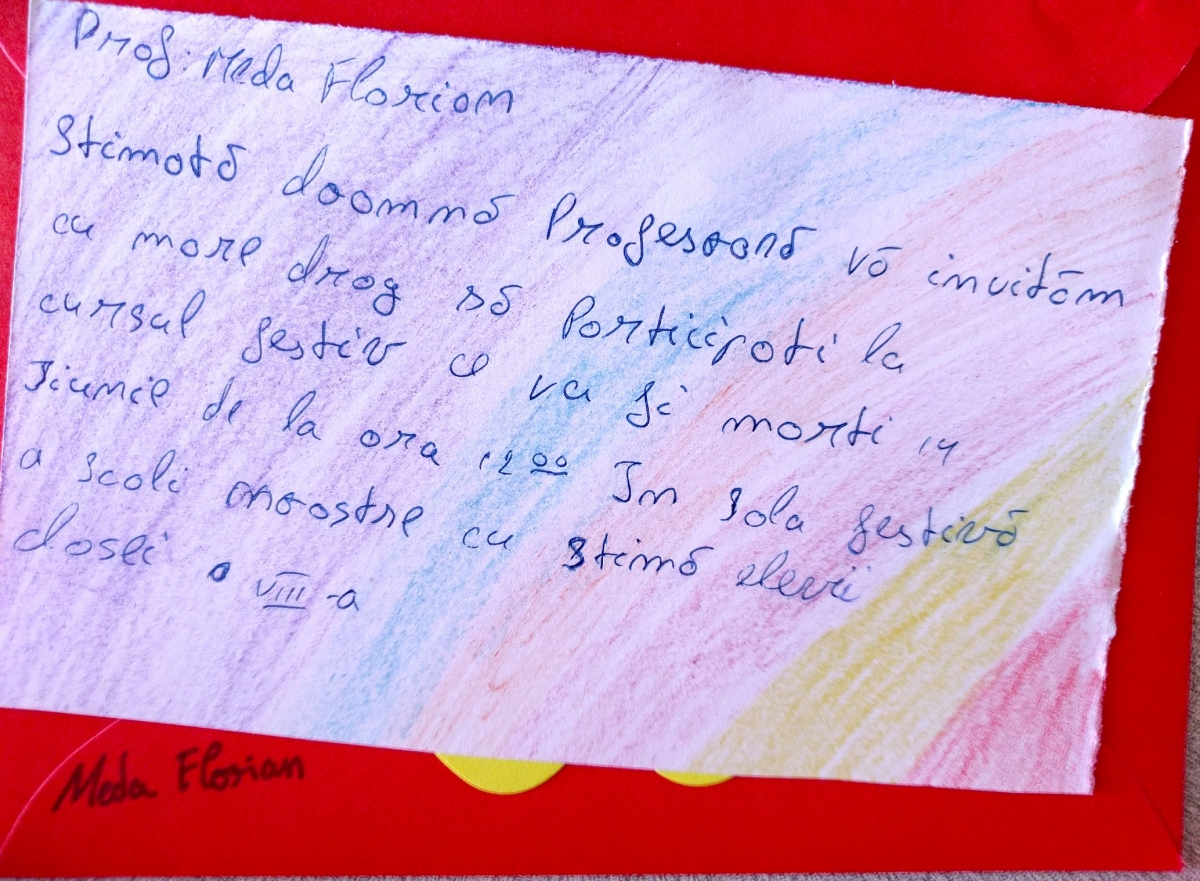 Prof: Meda Florian
Stimată doamnă Profesoară vă invităm
cu mare drag să Participati la
cursul festiv ce va fi marti 14
Iiunie de la ora 12 00 În Sala festivă
a scoli noastre cu Stimă elevii
clasei a VIII-a
Meda Florian